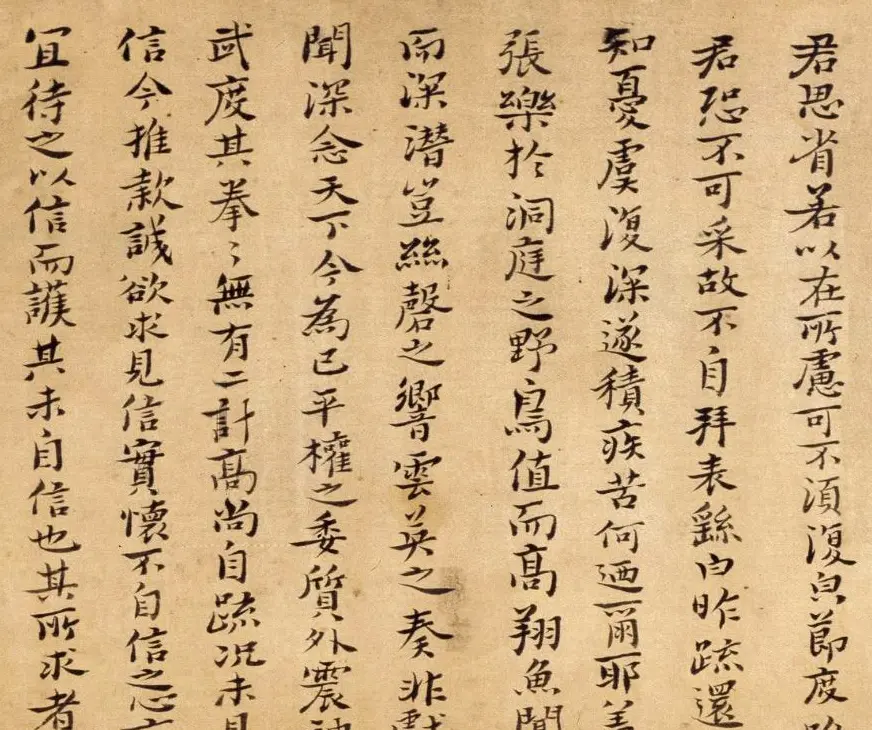 君思省若以在所慮可不須復皃節度
君恐不可采故不自拜表繇白昨疏還
知憂虞復深遂積疾苦何迺爾耶蓋
張樂於洞庭之野鳥值而高翔魚聞
而深潛豈絲磬之響雲英之奏非
聞深念天下今為已平權之委質外震神
武度其拳〻無有二計高尚自疏況未見
信今推款誠欲求見信實懷不自信之心亦
宜待之以信而護其未自信也其所求者